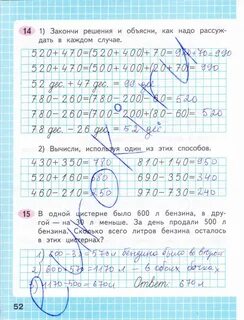 14 1) Закончи решения и объясни, как надо рассуждать в каждом случае.
520+470=(500+400)+(20+70)=990
520+470=520+(400+70)=920+70=990
52 дес.+47 дес.=99 дес.
780-260=(780-200)-60=520
780-260=(700-200)+(80-60)=520
78 дес.-26 дес.=52 дес
2) Вычисли, используя один из этих способов.
430+350=780 810+140=950
520+160=680 690-350=340
460-210=250 970-730=240
15 В одной цистерне было 600 л бензина, в другой — на 30 л меньше. За день продали 500 л бензина. Сколько всего литров бензина осталось в этих цистернах?
1) 600-30=570л бензина было в второй
2) 600+570=1170л - в обоих бочках
3) 1170-500=670л Ответ: 670л
52